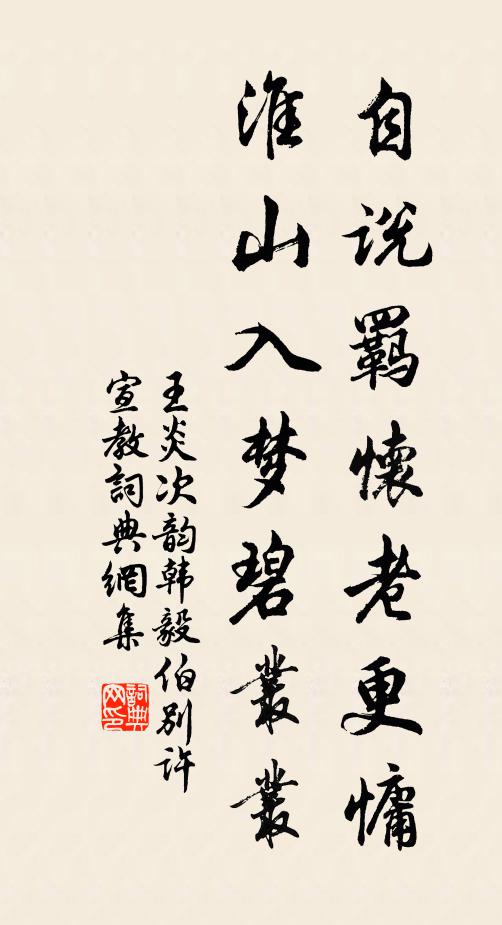 自说羁懷老更慵
淮山入梦碧叢叢
王炎次韵韩毅伯别许
宣教詞典網集
詞典网印